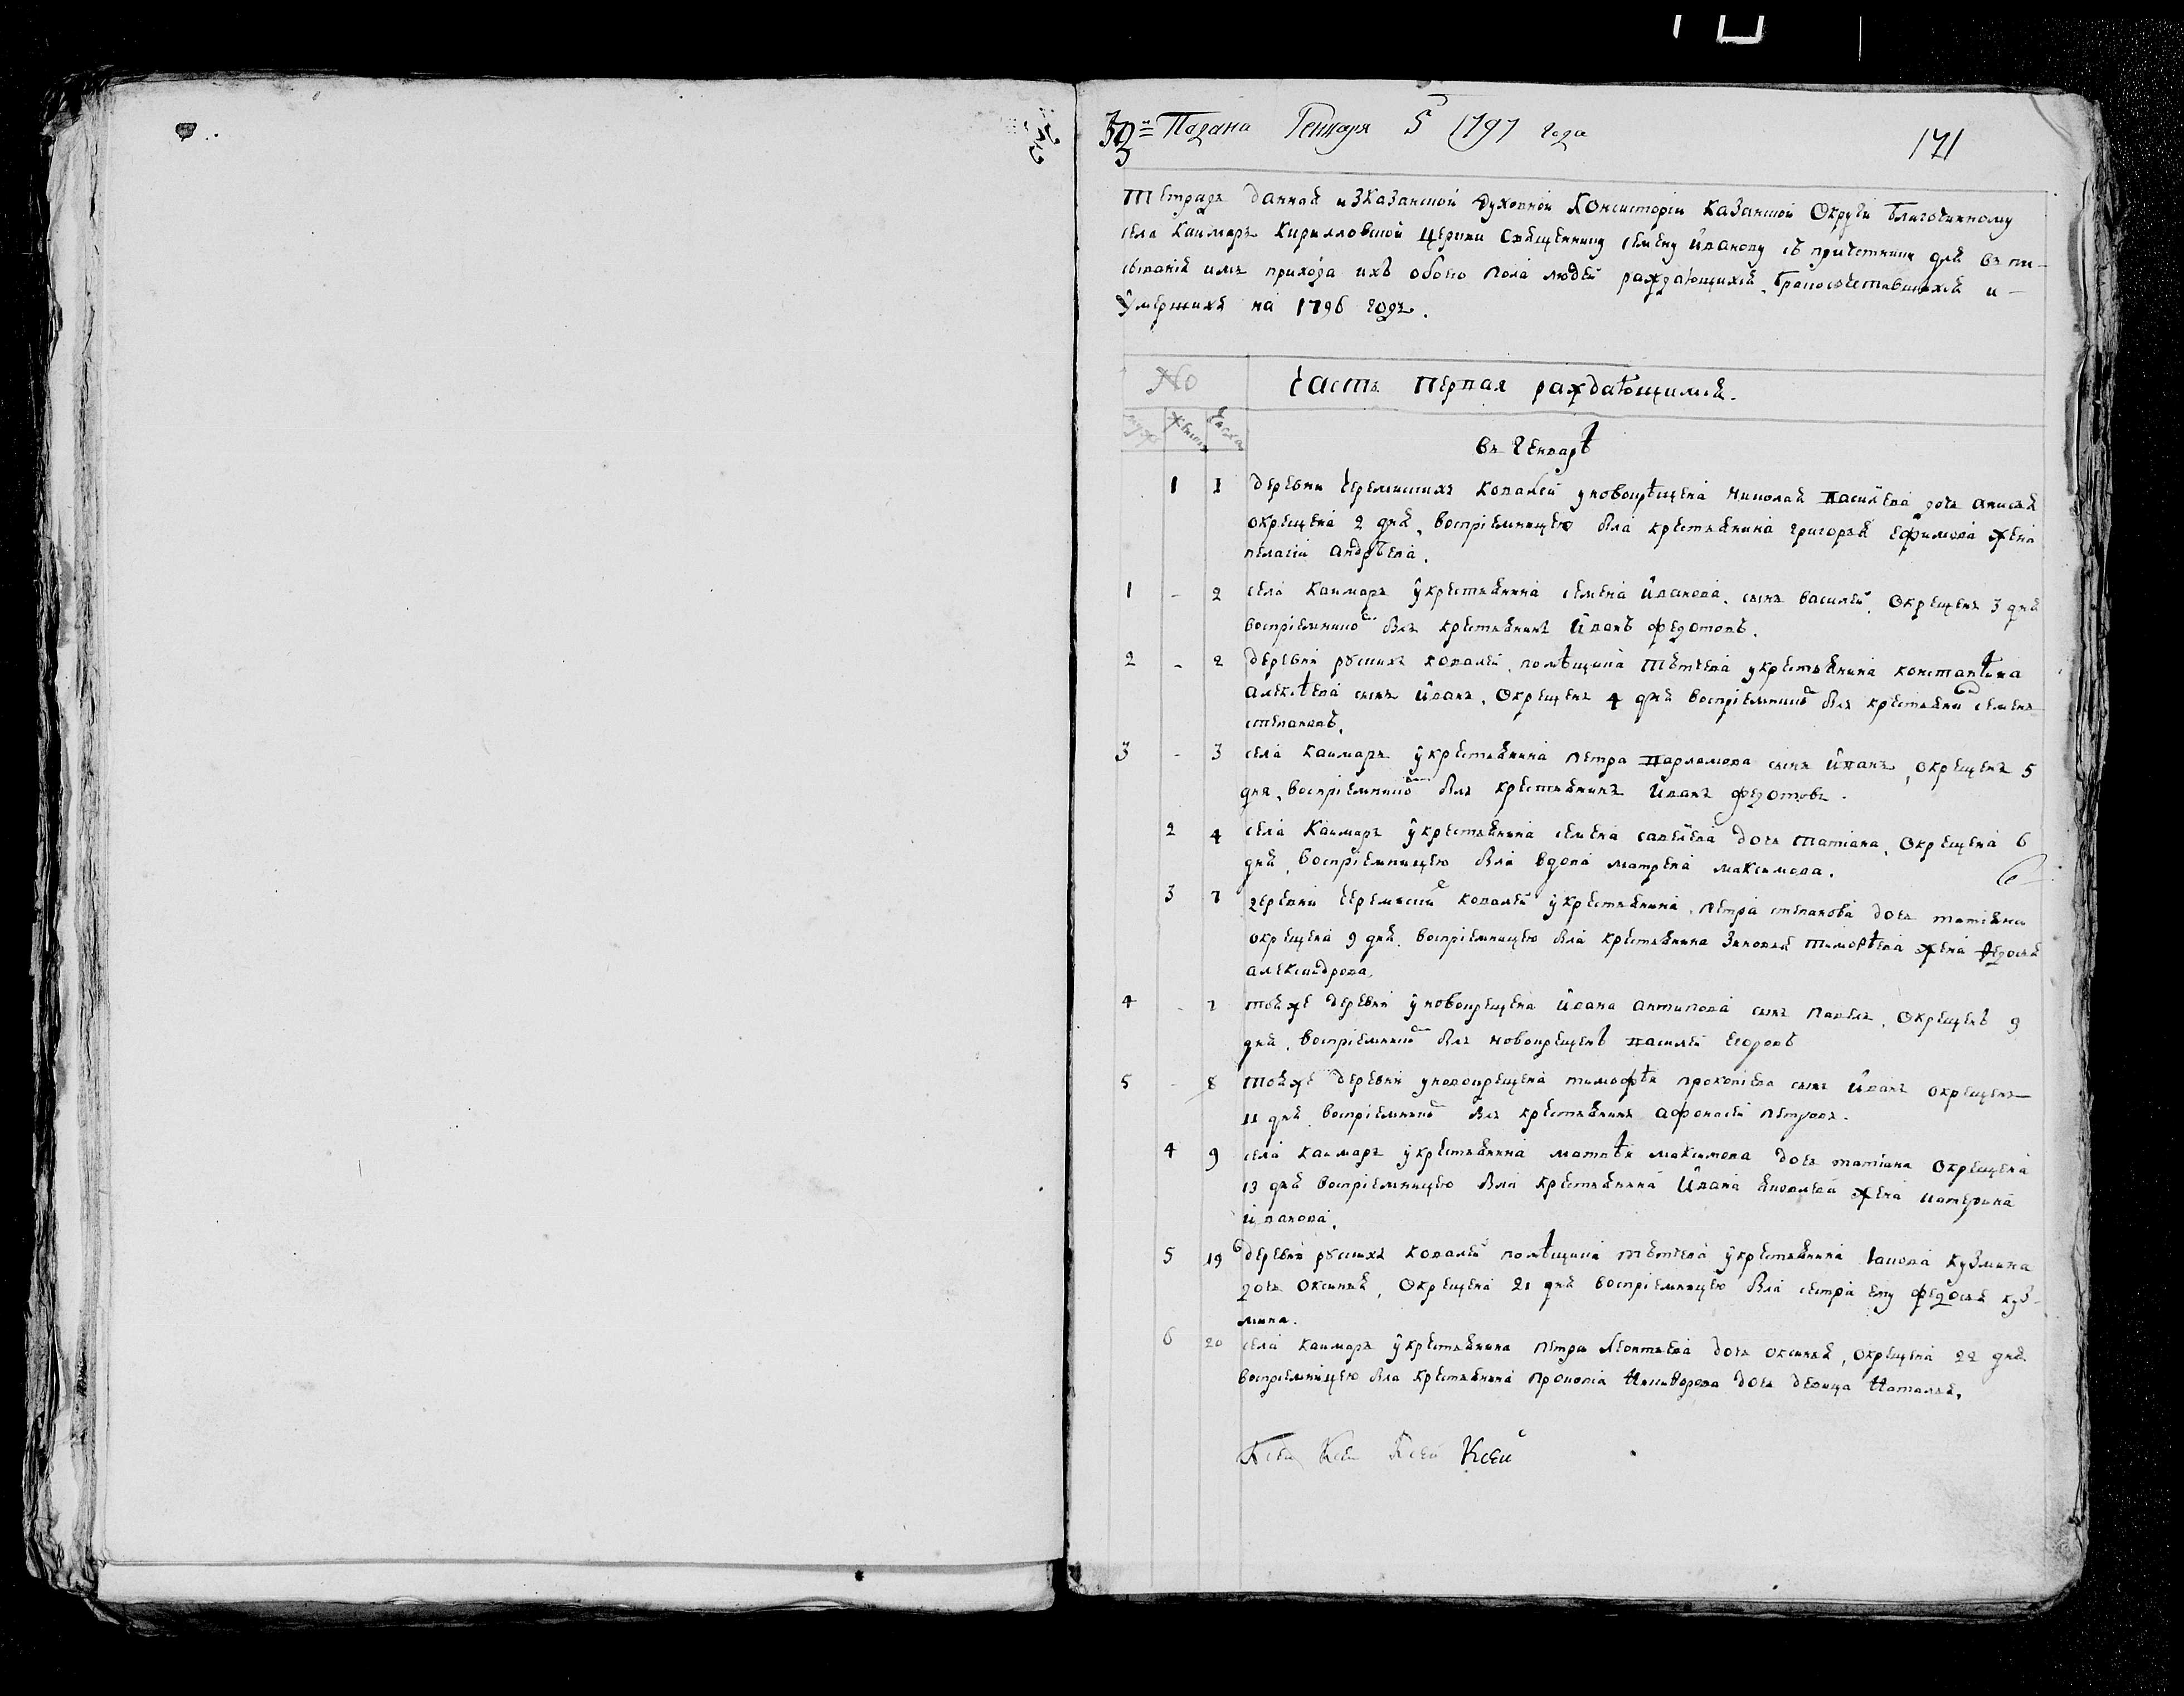 Подана Генваря 5 1797 года
171
Тетрадь данная изКазанской духовной Консисторіи Казанской Округи благочинному
села Каимаръ Кирилловской церкви Священнику Семену Иванову съ причетники для въпи-
сыванія имъ прихода ихъ обоего пола людей раждающихся, бракосочетавшихся и-
Умершихъ на 1796 годъ.
No Часть первая раждающимся.
муж женск числа
въ Генварѣ
1 1 деревни Черемискихъ ковалей уновокрѣщена Николая Васильева дочь анисья
окрещена 2 дня, воспріемницею была крестьянина григорья Ефимова жена
пелагія андрѣева.
1 - 2 села Каимаръ укрестьянина семена иванова, сынъ василей, Окрещенъ 3 дня
воспріемникомъ былъ крестьянинъ Иванъ федотовъ.
2 - 2 деревни рускихъ ковалей, помѣщика Тетеева укрестьянина константина
алексѣева сынъ иванъ, Окрещенъ 4 дня воспріемникомъ былъ крестьянинъ семенъ
степановъ,
3 - 3 села каимаръ укрестьянина петра варламова сынъ иванъ, окрещенъ 5
дня, воспріемникомъ былъ крестьянинъ Иванъ федотовъ.
2 4 села Каимаръ укрестьянина семена савельева дочь татіана, Окрещена 6
дня, воспріемницею была вдова матрена максимова.
3 7 деревни черемиски ковалей укрестьянина, петра степанова дочь татіана
окрещена 9 дня, воспріемницею была крестьянина Зиновья тимофѣева жена федосья
александрова,
4 - 7 тояже деревни уновокрещена ивана антипова сынъ павелъ, Окрещенъ 9
дня, воспріемникомъ былъ новокрещенъ василей Егоровъ
5 - 8 тояже деревни уновокрещена тимофѣя прокопіева сынъ иванъ окрещенъ
11 дня воспріемникомъ былъ крестьянинъ афонасей петровъ.
4 9 села каимаръ укрестьянина матвѣя максимова дочь татіана Окрещена
13 дня воспріемницею была крестьянина Ивана яковлева жена катерина
иванова,
5 19 деревни рускихъ ковалей помѣщика тетеева укрестьянина Іакова кузмина
дочь оксинья, Окрещена 21 дня воспріемницею была сестра ему федосья куз-
мина.
6 20 села каимаръ укрестьянина петра Леонтьева дочь оксинья, окрещена 22 дня
воспріемницею была крестьянина прокопія Никифорова дочь девица Наталья,
Ксеи Ксеи Ксеи Ксеи